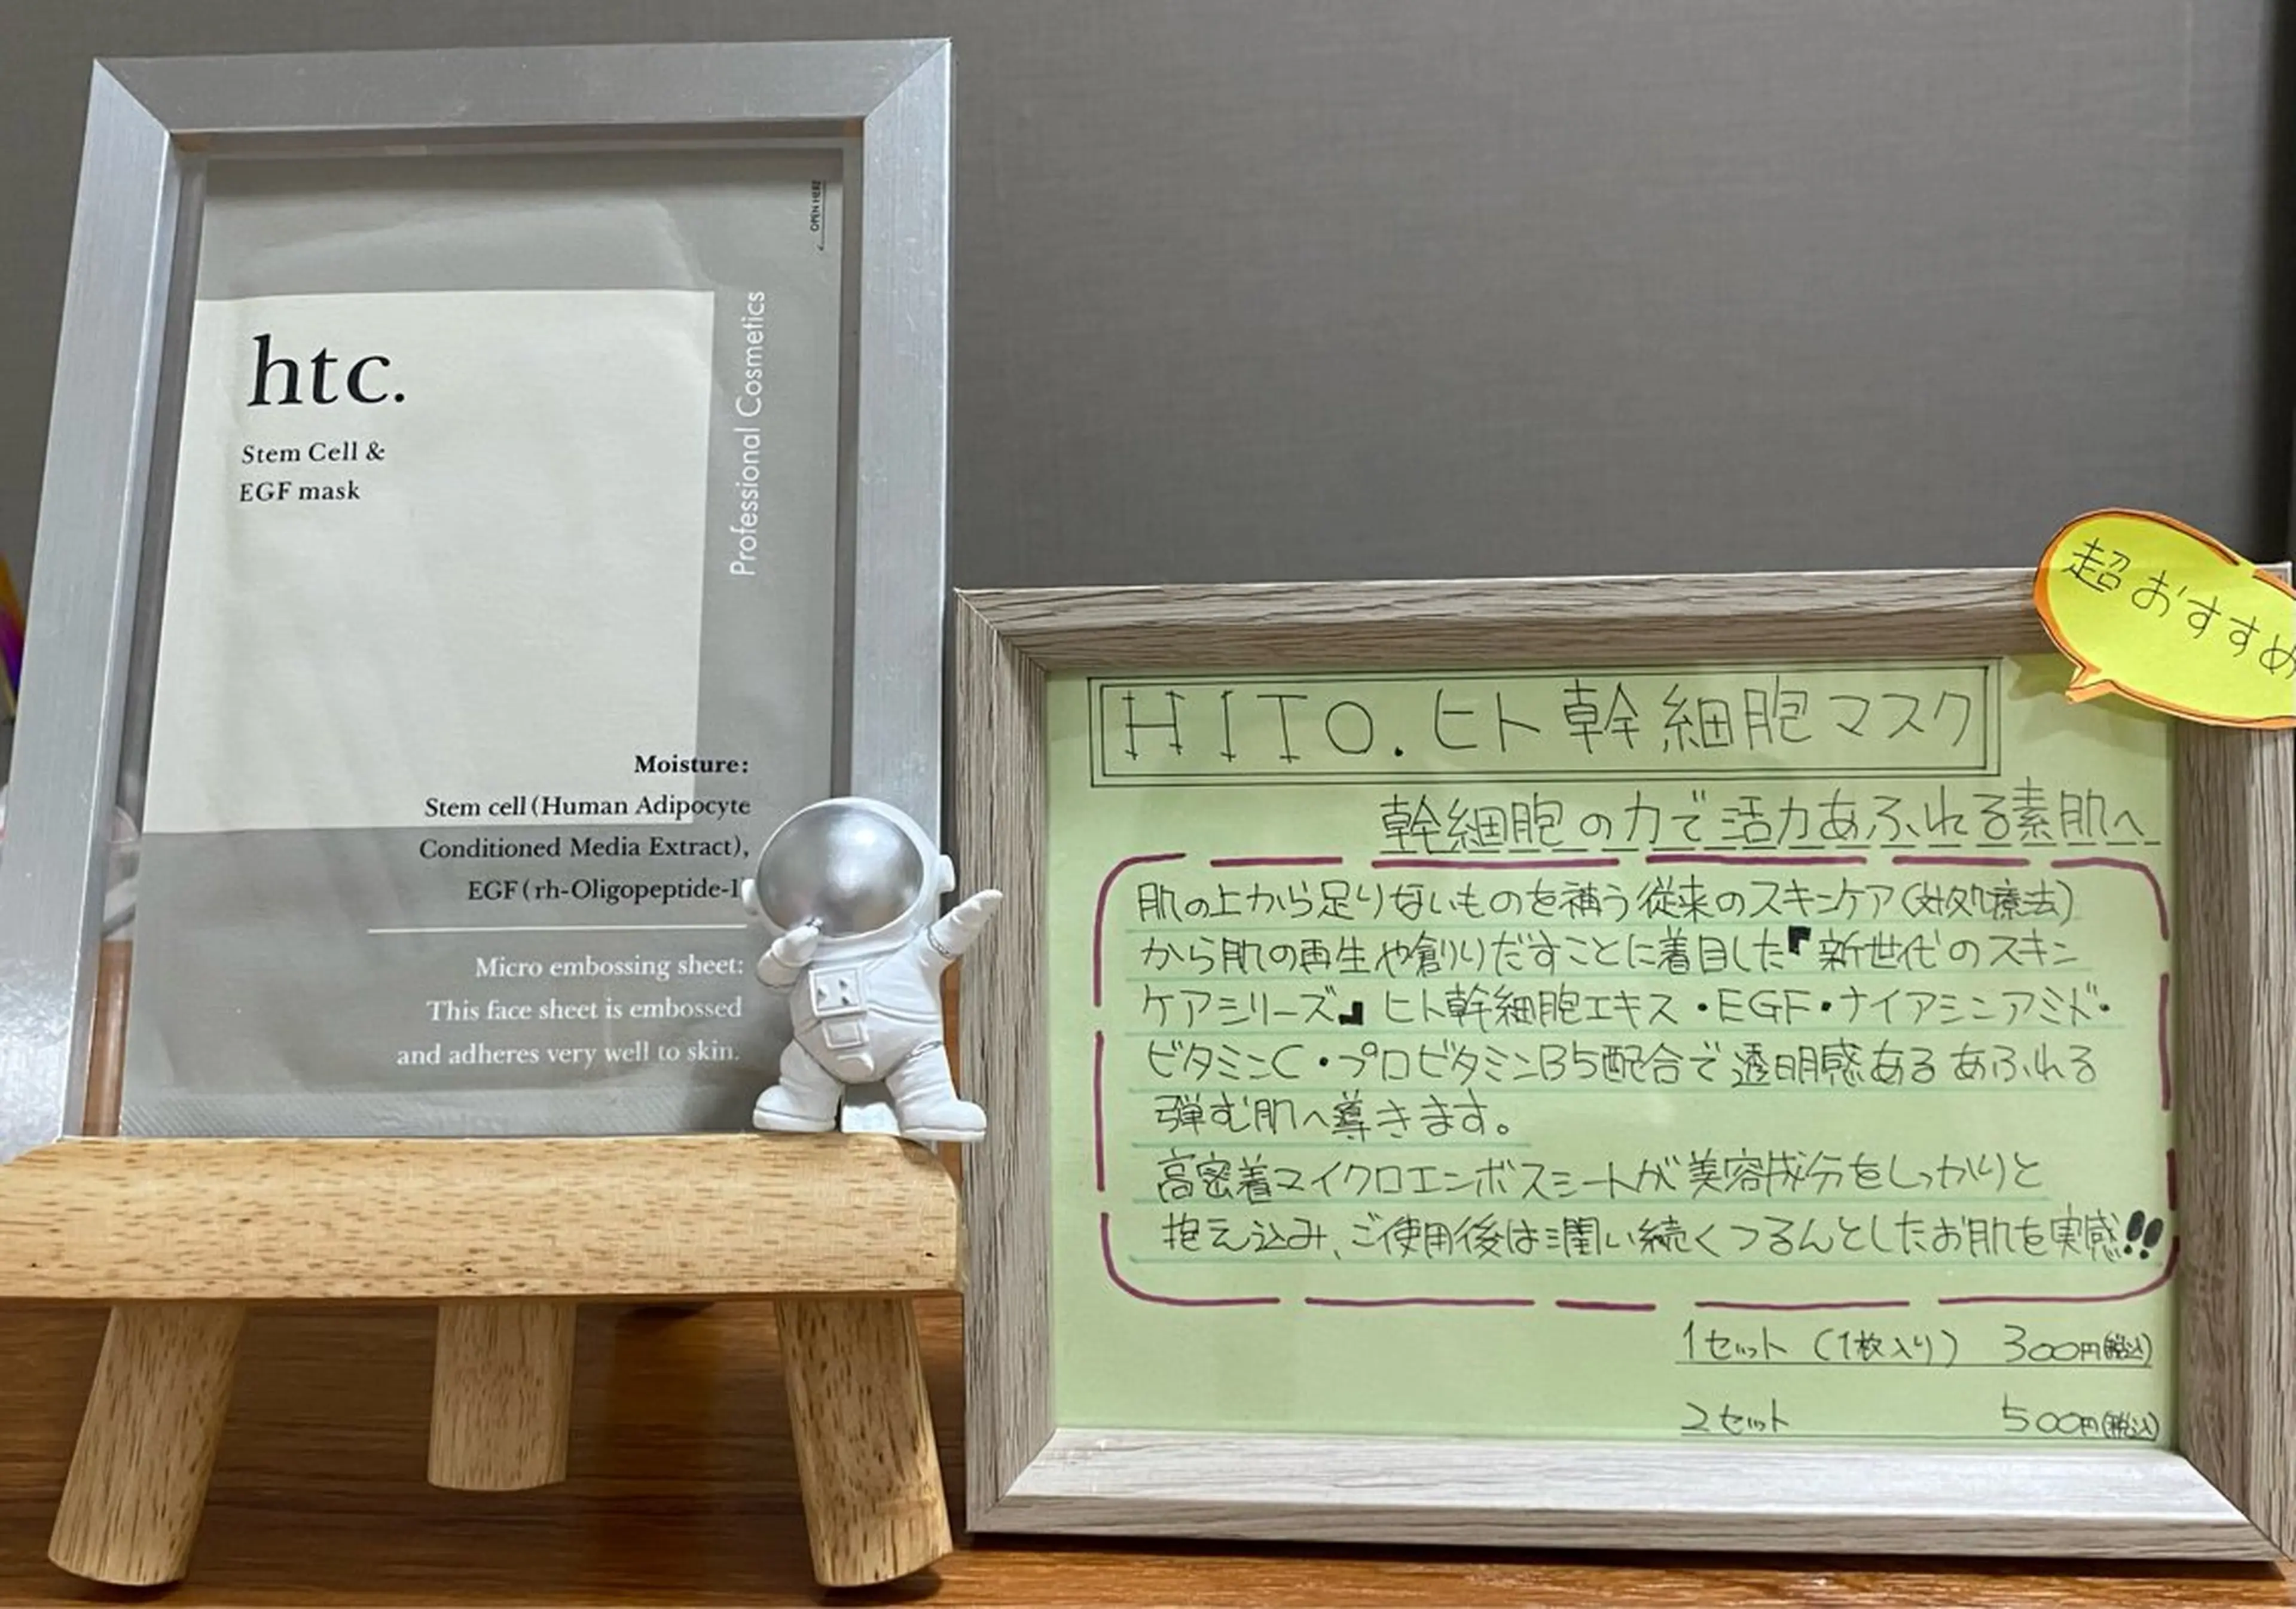 OPEN HERE
htc.
Stem Cell &
EGF mask
Professional Cosmetics
Moisture:
Stem cell (Human Adipocyte
Conditioned Media Extract),
EGF (rh-Oligopeptide-1
Micro embossing sheet:
This face sheet is embossed
and adheres very well to skin.
超おすすめ
HITO.ヒト幹細胞マスク
幹細胞の力で活力あふれる素肌へ
肌の上から足りないものを補う従来のスキンケア(対処療法)
から肌の再生や創りだすことに着目した『新世代のスキン
ケアシリーズ』ヒト幹細胞エキス・EGF・ナイアシンアミド・
ビタミンC・プロビタミンB5配合で透明感あるあふれる
弾む肌へ導きます。
高密着マイクロエンボスシートが美容成分をしっかりと
抱え込み、ご使用後は潤い続くつるんとしたお肌を実感!!
1セット (1枚入り) 300円(税込)
2セット 500円(税込)